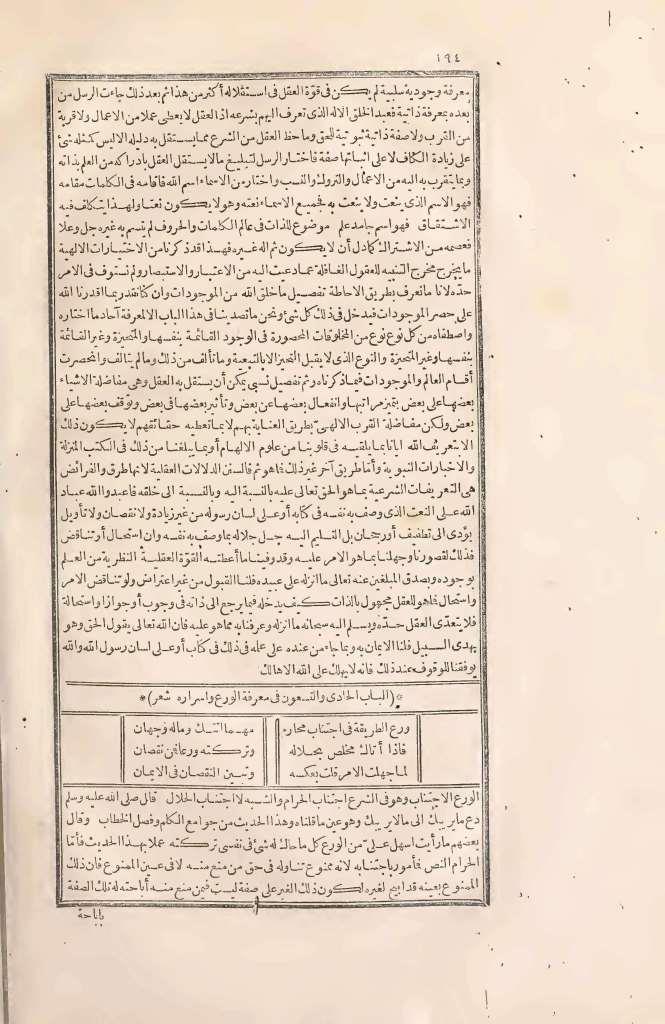 ١٩٤
معرفة وجودية سلبية لم يكن فى قوّة العقل فى استقلاله أكثر من هذا ثم بعد ذلك جاءت الرسل من
بعده بمعرفة ذاتية فعبد الخلق الاله الذى تعرف اليهم بشرعه اذ العقل لا يعطى عملا من الاعمال ولا قربة
من القرب ولا صفة ذاتية ثبوتية للحق وما حظ العقل من الشرع مما يستقل به دليله الا ليس كمثله شئ
على زيادة الكاف لا على اثباتها صفة فاختار الرسل لتبليغ ما لا يستقل العقل بادراكه من العلم بذاته
وبما يتقرب به اليه من الاعمال والتروك والنسب واختار من الاسماء اسم الله فأقامه فى الكلمات مقامه
فهو الاسم الذى ينعت ولا ينعت به فجميع الاسماء نعته وهو لا يكون نعتا ولهذا يتكلف فيه
الاشتقاق فهو اسم جامد علم موضوع للذات فى عالم الكلمات والحروف لم يتسم به غيره جل وعلا
فعصمه من الاشتراك كما دل أن لا يكون ثم اله غيره فهذا قد ذكرنا من الاختيارات الالهية
ما يخرج مخرج التنبيه للعقول الغافلة عما دعيت اليه من الاعتبار والاستبصار ولم نستوف فى الامر
حدّه لانا ما نعرف بطريق الاحاطة تفصيل ما خلق الله من الموجودات وان كنا نقدر بما اقدرنا الله
على حصر الموجودات فيدخل فى ذلك كل شئ ونحن ما تصدينا فى هذا الباب الا لمعرفة آحاد ما اختاره
واصطفاه من كل نوع نوع من المخلوقات المحصورة فى الوجود القائمة بنفسها والمتحيزة وغير القائمة
بنفسها وغير المتحيزة والنوع الذى لا يقبل التحيز الا بالتبعية وما تألف من ذلك وما لم يتألف وانحصرت
أقسام العالم والموجودات فيما ذكرناه وثم تفصيل نسبى يمكن أن يستقل به العقل وهى مفاضلة الاشياء
بعضها على بعض بتميز مراتبها وانفعال بعضها عن بعض وتأثير بعضها فى بعض وتوقف بعضها على
بعض ولكن مفاضلة القرب الالهى بطريق العناية بهم لا بما تعطيه حقائقهم لا يكون ذلك
الا بتعريف الله ايانا بما يلقيه فى قلوبنا من علوم الالهام أو بما يبلغنا من ذلك فى الكتب المنزلة
والاخبارات النبوية وأما طريق آخر غير ذلك فما هو ثم فالسنن الدلالات العقلية لانها طرق والفرائض
هى التعريفات الشرعية بما هو الحق تعالى عليه بالنسبة اليه وبالنسبة الى خلقه فاعبدوا الله عباد
الله على النعت الذى وصف به نفسه فى كتابه أو على لسان رسوله من غير زيادة ولا نقصان ولا تأويل
يؤدى الى تطفيف أو رجحان بل التسليم اليه جل جلاله بما وصف به نفسه وان استحال أو تناقض
فذلك لقصورنا وجهلنا بما هو الامر عليه وقد وفينا ما أعطته القوّة العقلية النظرية من العلم
بوجوده وبصدق المبلغين عنه تعالى ما انزله على عبيده فلنا القبول من غير اعتراض ولو تناقض الامر
واستحال فما هو للعقل مجهول بالذات كيف يدخله فيما يرجع الى ذاته فى وجوب أو جواز أو استحالة
فلا يتعدّى العقل حدّه ويسلم اليه سبحانه ما انزله وعرفنا به مما هو عليه فان الله تعالى يقول الحق وهو
يهدى السبيل فلنا الايمان به وبما جاء من عنده على علمه فى ذلك فى كتاب أو على لسان رسول الله والله
يوفقنا للوقوف عند ذلك فانه لا يهلك على الله الا هالك
*(الباب الحادى والتسعون فى معرفة الورع واسراره شعر)*
ورع الطريقة فى اجتناب محارم مهما أتتك وما له وجهان
فاذا أتاك مخلص بحلاله وتركته ورعا فمن نقصان
لما جهلت الامر قلت بعكسه وتبين النقصان فى الايمان
الورع الاجتناب وهو فى الشرع اجتناب الحرام والشبه لا اجتناب الحلال قال صلى الله عليه وسلم
دع ما يريبك الى ما لا يريبك وهو عين ما قلناه وهذا الحديث من جوامع الكلم وفصل الخطاب وقال
بعضهم ما رأيت اسهل علىّ من الورع كل ما حاك له شئ فى نفسى تركته عملا بهذا الحديث فأمّا
الحرام النص فمأمور باجتنابه لانه ممنوع تناوله فى حق من منع منه لا فى عين الممنوع فان ذلك
الممنوع بعينه قد ابيح لغيره لكون ذلك الغير على صفة ليست فيمن منع منه أباحته له تلك الصفة
باباحة